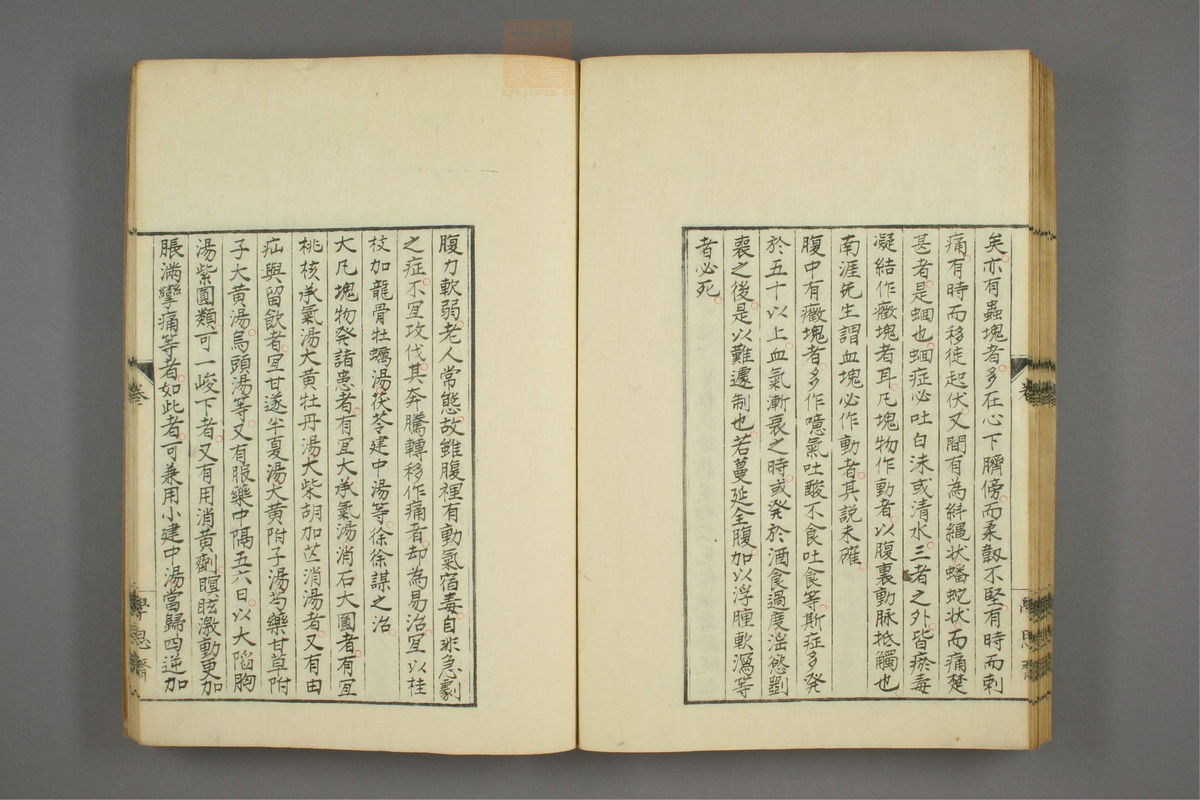 矣亦有蟲塊者多在心下臍傍而柔韌不堅有時而刺
痛有時而移徙起伏又間有為糾繩状蟠蛇状而痛楚
甚者是蛔也蛔症必吐白沫或清水三者之外皆瘀毒
凝結作癥塊者耳凡塊物作動者以腹裏動脉抵觸也
南涯先生謂血塊必作動者其説未確
腹中有癥塊者多作噫氣吐酸不食吐食等斯症多発
於五十以上血氣漸衰之時或発於酒食過度淫慾劉
喪之後是以難遽制也若蔓延全腹加以浮腫軟瀉等
者必死
腹力軟弱老人常態故雖腹裡有動氣宿毒自非急劇
之症不宜攻伐其奔騰轉移作痛者却為易治宜以桂
枝加龍骨牡蠣湯茯苓建中湯等徐徐謀之治
大凡塊物発諸患者有宜大承氣湯消石大圓者有宜
桃核承氣湯大黄牡丹湯大柴胡加芒消湯者又有由
疝與留飲者宜甘遂半夏湯大黄附子湯芍藥甘草附
子大黄湯烏頭湯等又有服藥中隔五六日以大陷胸
湯紫圓類可一峻下者又有用消黄劑瞑眩激動更加
脹滿攣痛等者如此者可兼用小建中湯當歸四逆加
卷
學思齋